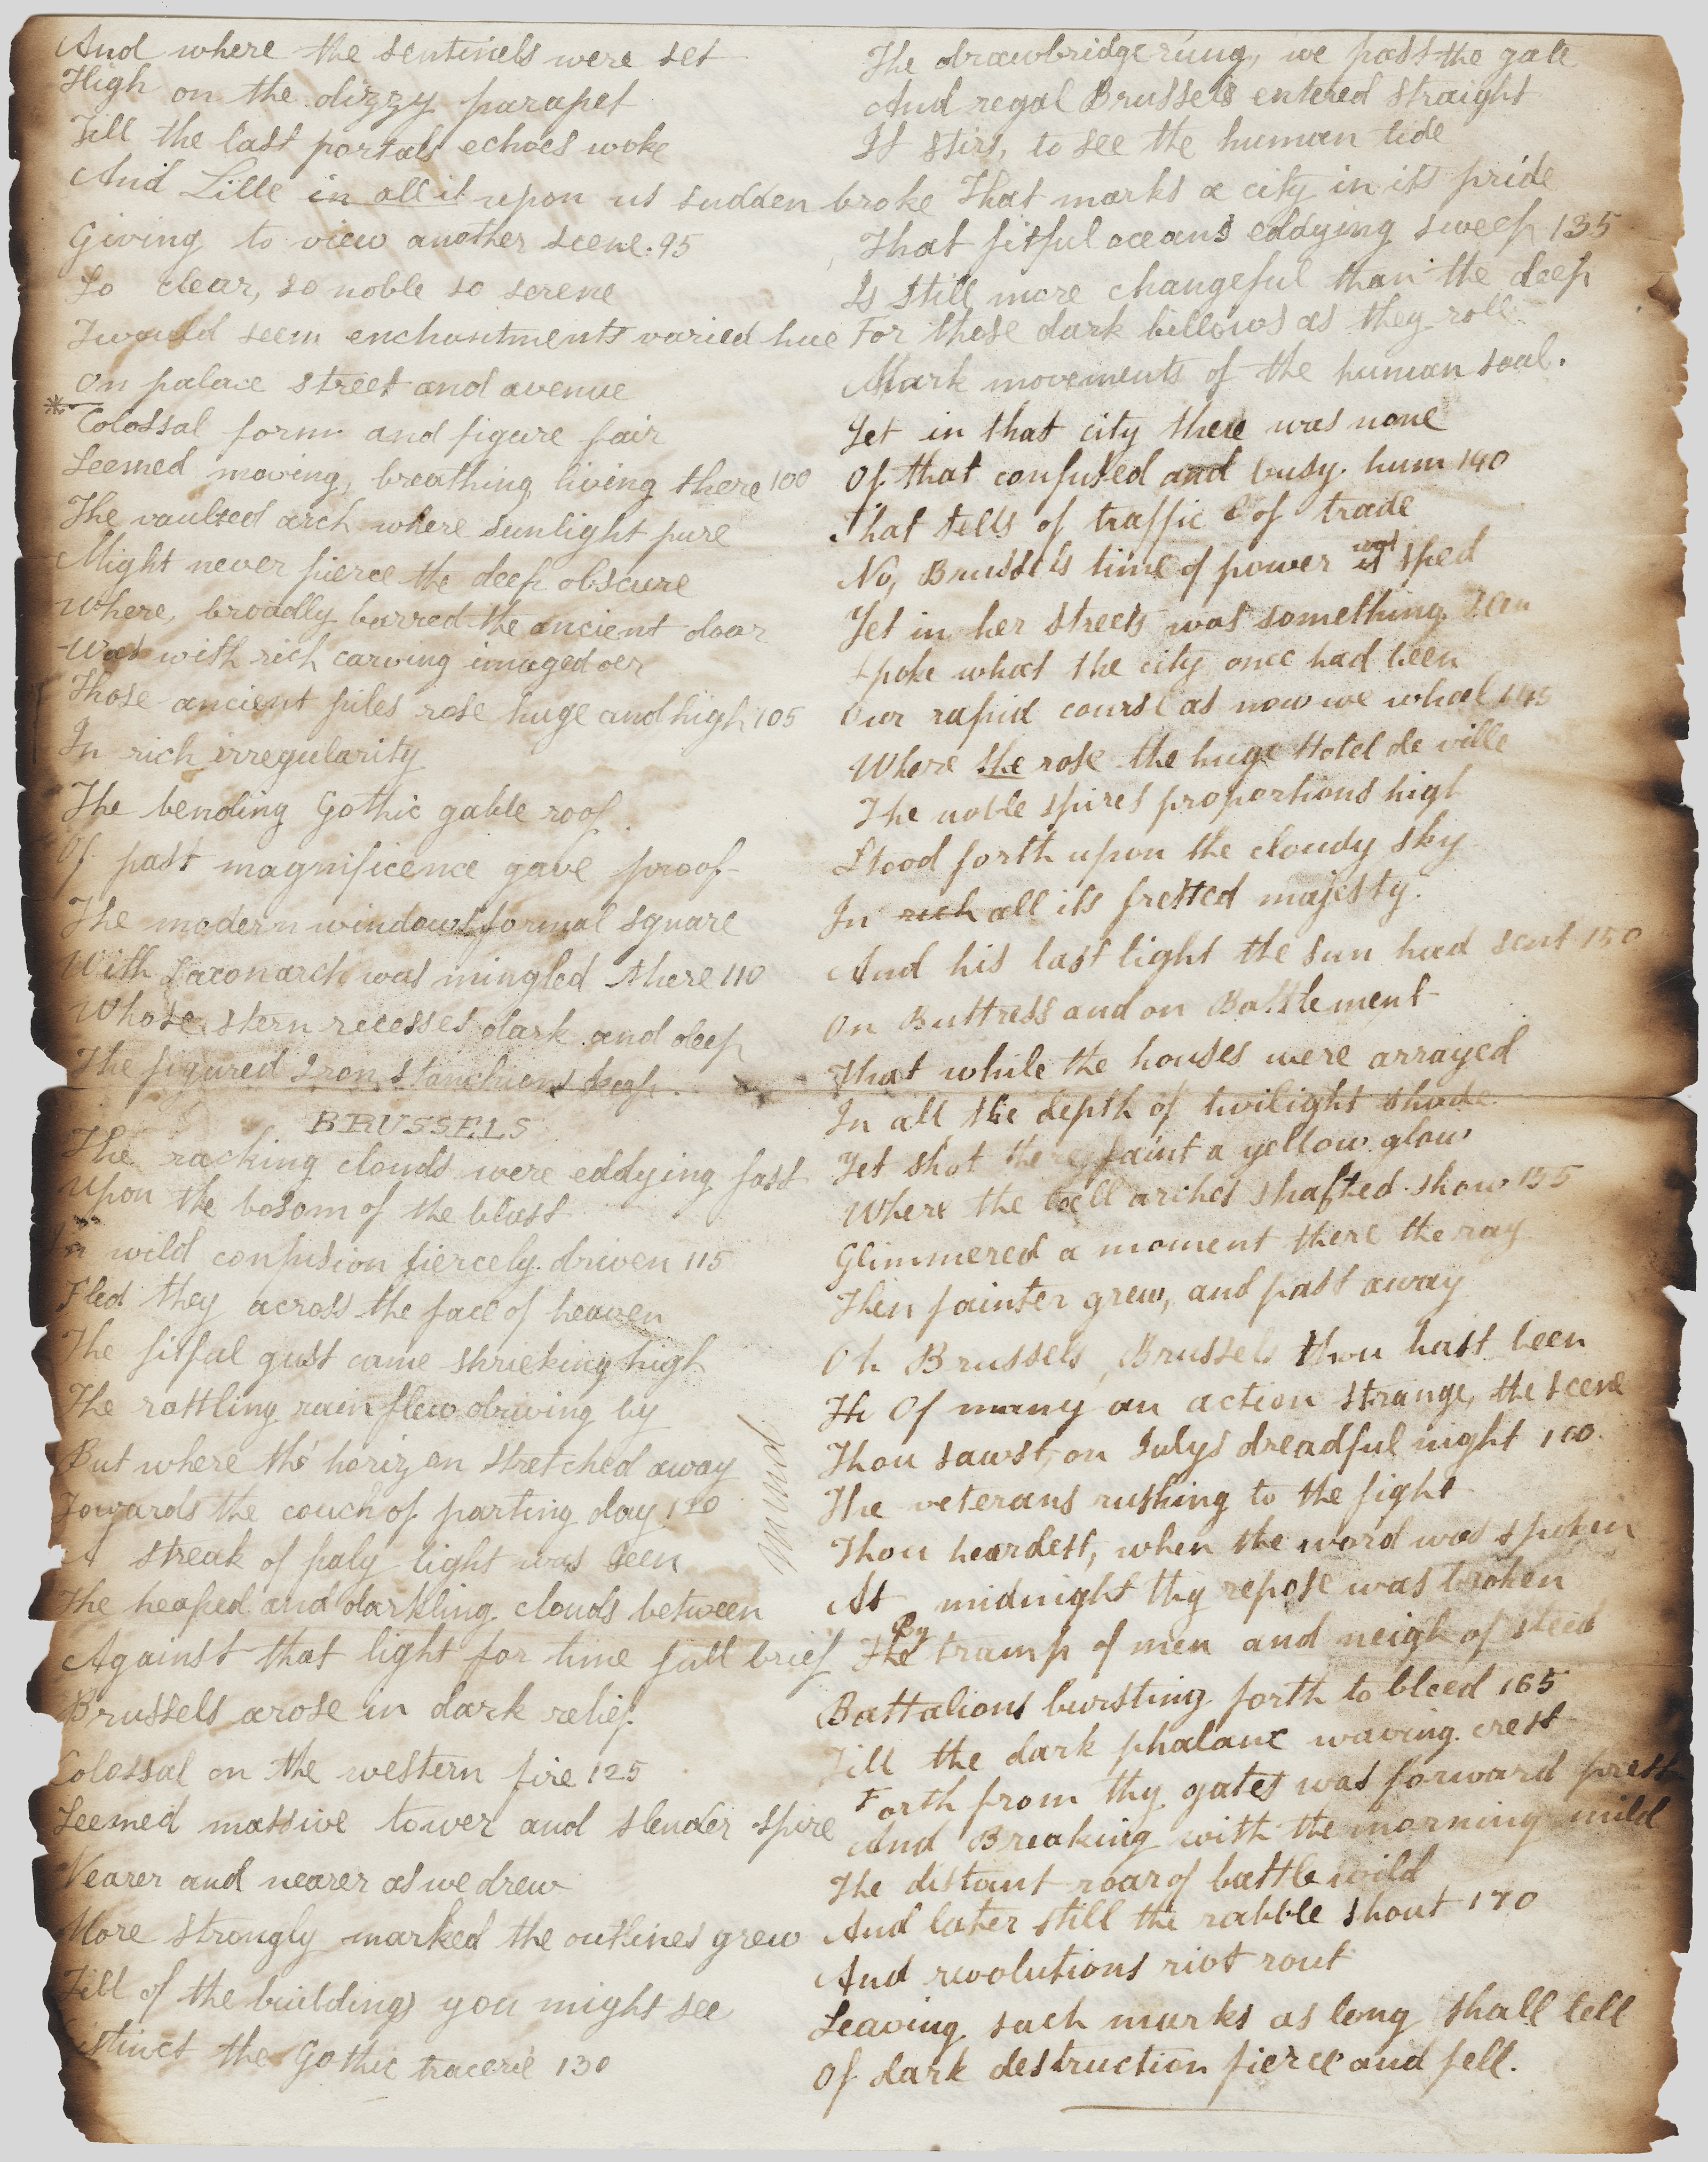 And where the sentinels were set
High on the dizzy parapet
Till the last portals echoes woke
And Lille in all it upon us sudden broke
Giving to view another scene. 95
So clear, so noble so serene
Twould seem enchantments varied hue
On palace street and avenue
Colossal form and figure fair
Seemed moving, breathing, living there 100
The vaulted arch where sunlight pure
Might never pierce the deep obscure
Where, broadly barred the ancient door
Was with rich carving imaged oer
Those ancient piles rose huge and high 105
In rich irregularity
The bending Gothic gable roof
Of past magnificence gave proof
The modern windows formal square
With Saxon arch was mingled there 110
Whose stern recesses dark and deep
The figured Iron Stanchions keep.
BRUSSELS
The racking clouds were eddying fast
Upon the bosom of the blast
In wild confusion fiercely driven 115
Fled they across the face of heaven
The fitful gust came shrieking high
The rattling rain flew driving by
But where the horizon stretched away
Towards the couch of parting day 120
A streak of paly light was seen
The heaped and darkling clouds between
Against that light for time full brief
Brussels arose in dark relief
Colossal on the western fire 125
Seemed massive tower and slender spire
Nearer and nearer as we drew
More strongly marked the outlines grew
Till of the buildings you might see
Distinct the Gothic tracerie 130
mund
The drawbridge rung, we pass the gate
And regal Brussels entered straight
It stirs, to see the human tide
That marks a city in its pride
That fitful oceans eddying sweep 135
Is still more changeful than the deep
For those dark billows as they roll
Mark movements of the human soul.
Yet in that city there was none
Of that confused and busy hum 140
That tells of traffic & of trade
No, Brussels time of power is was sped
Yet in her streets was something seen
Spoke what the city once had been
Our rapid course as now we wheel 145
Where the rose the huge Hotel de ville
The noble spires proportions high
Stood forth upon the cloudy sky
In rich all its fretted majesty.
And his last light the sun had sent 150
On Buttress and on Battlement
That while the houses were arrayed
In all the depth of twilight shade
Yet shot there faint a yellow glow
Where the tall arches shafted show 155
Glimmered a moment there the ray
Then fainter grew, and past away
Oh Brussels, Brussels thou hast been
Th Of many an action strange, the scene
Thou sawst, on Julys dreadful night 160
The veterans rushing to the fight
Thou heardest, when the word was spoken
At midnight thy repose was broken
The By tramp of men and neigh of steed
Battalions bursting forth to bleed 165
Till the dark phalanx waving crest
Forth from thy gates was forward prest
And Breaking with the morning mild
The distant roar of battle wild
And later still the rabble shout 170
And revolutions riot rout
Leaving such marks as long shall tell
Of dark destruction fierce and fell.